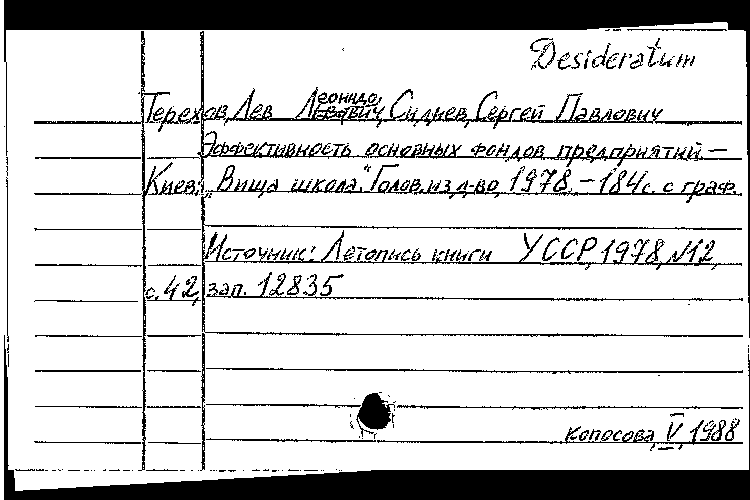 Desideratum
Терехов, Лев Леонидович, Сиднев, Сергей Павлович
Эффективность основных фондов предприятий. —
Киев: „Вища школа". Голов. изд-во, 1978. – 184 с. с граф.
Источник: Летопись книги УССР, 1978, №12,
с. 42, зап. 12835
Копосова, V, 1988